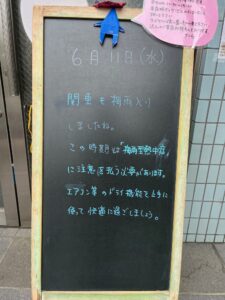 6月11日(水)
関東も梅雨入り
しましたね。
この時期は「梅雨型熱中症」
に注意を払う必要があります。
エアコン等のドライ機能を上手に
使って快適に過ごしましょう。